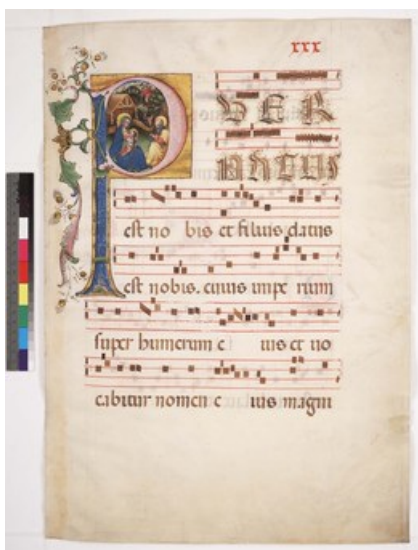 xxx
PUER
NATUS
est no bis et filius datus
est nobis. cuius impe rium
super humerum e ius et uo
cabitur nomen e ius magni